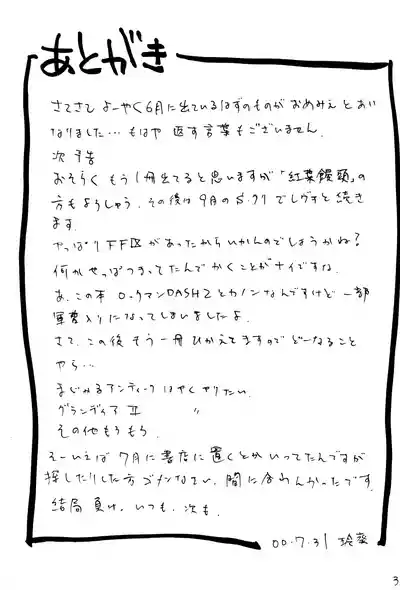 あとがき
さてさて よーやく6月に出ているはずのものがおめみえとあい
なりました…もはや 返す言葉もございません.
次予告
おそらく もう1冊出てると思いますが「紅葉饅頭」の
方もよろしゅう. その後は9月のS.クリでレヴォと続き
ます.
やっぱりFFⅨがあったからいかんのでしょうかね?
何かせっぱつまってたんで かくことがナイですな.
あ、この本 ロックマンDASH2とカノンなんですけど 一部
軍曹入りになってしまいましたよ.
さて、この後もう一冊ひかえてますのでどーなること
やら…
まじかるアンティーク はやくやりたい.
グランディアⅡ 〃
その他もろもろ.
そーいえば 7月に書店に置くとかいってたんですが
探したりした方ゴメンなさい. 間に合わんかったです.
結局 負け. いつも. 次も.
00.7.31
3